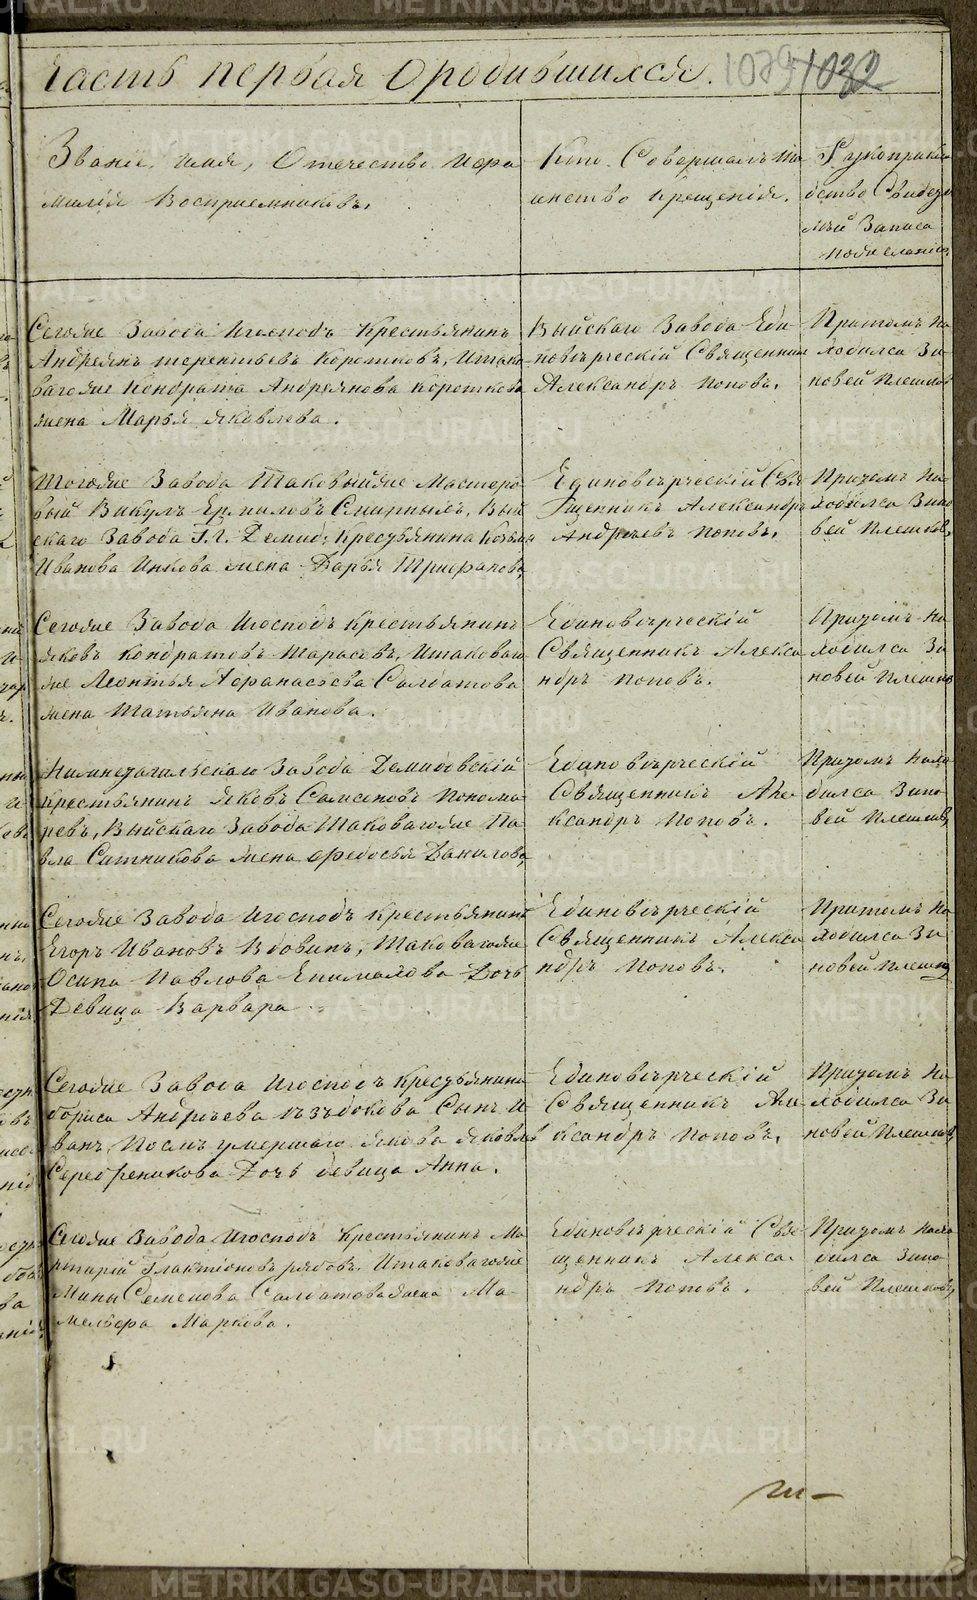 Часть первая О родившихся. 1032
Званіе, имя, Отечество и фа
милія Восприемниковъ.
Кто Совершалъ та
инство крещенія.
Рукоприкла
дство Свидете
лей Записа
по желанію.
Сегоже Завода Игосподъ Крестьянинъ
Андреянъ терентьевъ Коротковъ, Итако
вагоже Кондрата Андреянова короткова
жена Марья яковлева.
Выйскаго Завода Еди
новѣрческій Священник
Александръ Поповъ.
Притомъ на
ходился Зи
новей Плешков
Тогоже Завода Таковыйже Мастеро
вый Викулъ Ермиловъ Смирныхъ, Вый
скаго Завода Г. Г. Демид: Крестьянина Козьмы
Иванова Инкова жена Дарья Трифанова,
Единовѣрческій Свя
щенникъ Александръ
Андреевъ Поповъ,
Притомъ на
ходился Зино
вей Плешков,
Сегоже Завода Игосподъ Крестьянинъ
яковъ кондратовъ Тарасовъ, Итаковаго
же Леонтья Афанасьева Салдатова
жена Татьяна Иванова.
Единовѣрческій
Священникъ Алекса
ндръ Поповъ.
Притомъ на
ходился Зи
новей Плешков
Нижнетагильскаго Завода Демидовскій
крестьянинъ яковъ Самсоновъ Понома
ревъ, Выйскаго Завода Таковагоже Па
вла Ситникова жена Федосья Данилова,
Единовѣрческій
Священникъ Але
ксандръ Поповъ.
Притомъ нахо
дился Зино
вей Плешков,
Сегоже Завода Игосподъ Крестьянинъ
Егоръ Ивановъ Вдовинъ, Таковагоже
Осипа Павлова Епимахова Дочь
Девица Варвара
Единовѣрческій
Священникъ Алекса
ндръ Поповъ.
Притомъ на
ходился Зи
новей Плешков
Сегоже Завода Игосподъ Крестьянина
бориса Андреева Сынъ И
ванъ, Послѣ умершаго якова яковлева
Серебреникова Дочь девица Анна.
Единовѣрческій
Священникъ Але
ксандръ Поповъ,
Притомъ на
ходился Зи
новей Плешков,
Сегоже Завода Игосподъ Крестьянинъ Ма
ртирій Галактіоновъ рябовъ. Итаковагоже
Мины Семенова Салдатова жена Ма
мельфа Маркова.
Единовѣрческій Свя
щенникъ Алекса
ндръ Поповъ.
Притомъ нахо
дился Зино
вей Плешков,
METRIKI.GASO-URAL.RU